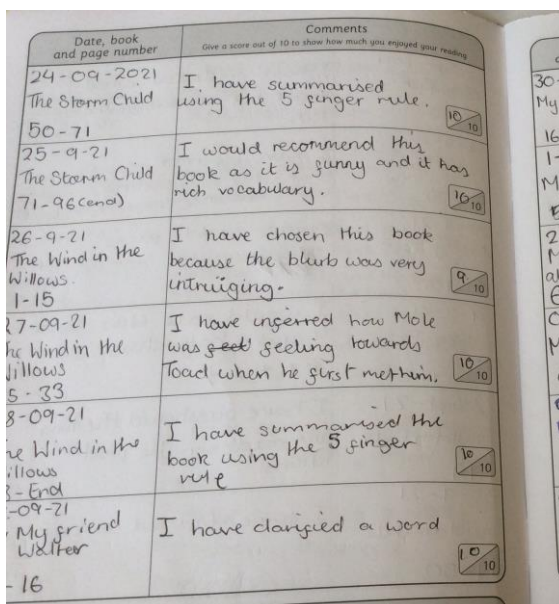 Date, book
and page number
Comments
Give a score out of 10 to show how much you enjoyed your reading
24-09-2021
The Storm Child
50-71
I have summarised
using the 5 finger rule.
10/10
25-9-21
The Storm Child
71-96(end)
I would recommend this
book as it is funny and it has
rich vocabulary.
10/10
26-9-21
The Wind in the
Willows.
1-15
I have chosen this book
because the blurb was very
intruiging.
9/10
27-09-21
The Wind in the
Willows
5-33
I have inferred how Mole
was feel feeling towards
Toad when he first met him.
10/10
8-09-21
he Wind in the
illows
3-End
I have summarised the
book using the 5 finger
rule
10/10
-09-21
My friend
Walter
-16
I have clarified a word
10/10
30-
My
16
1-
M
2
M